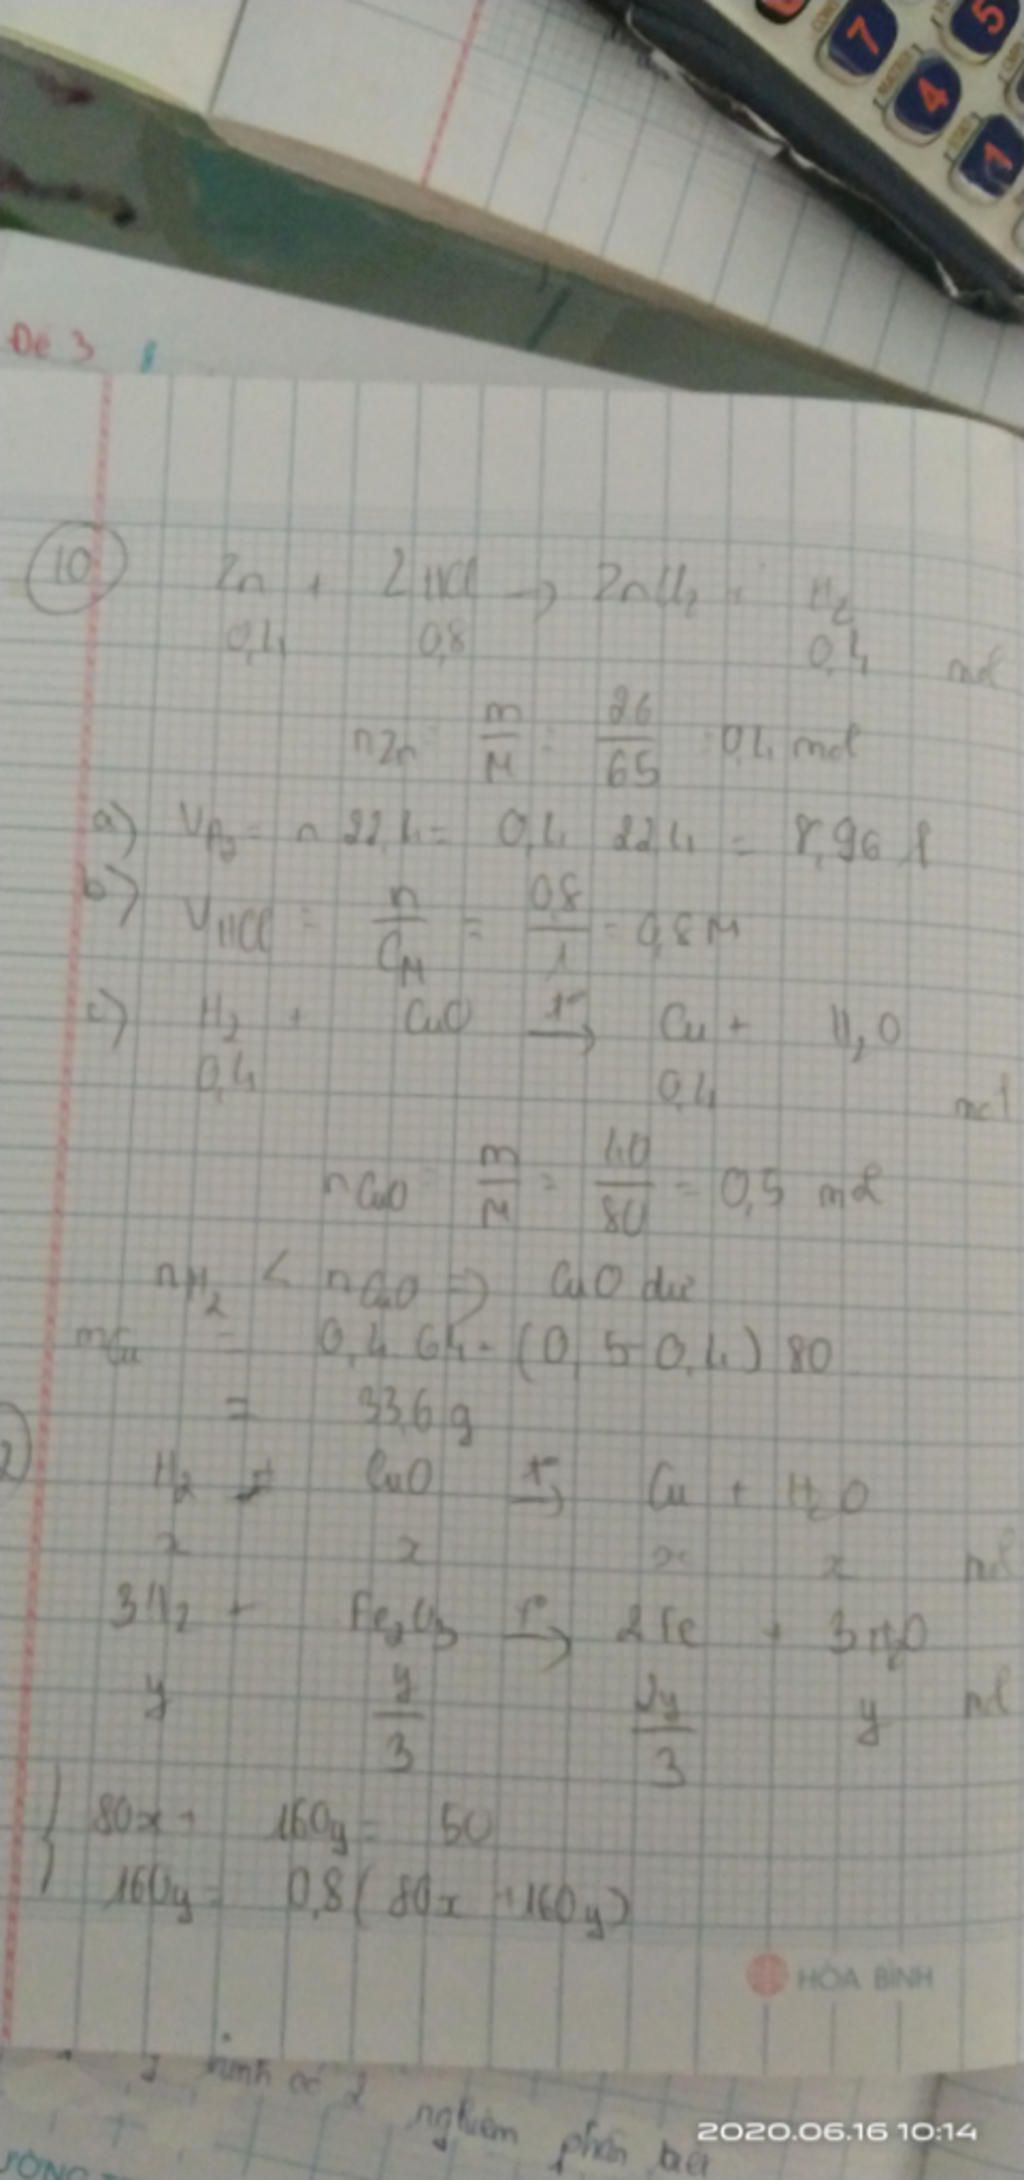 7
4
1
5
Đề 3
10 Zn + 2HCl → ZnCl₂ + H₂
0,4 0,8 0,4 mol
nZn = m/M = 26/65 = 0,4 mol
a) VH₂ = n 22,4 = 0,4 22,4 = 8,96 l
b) VHCl = n/CM = 0,8/1 = 0,8 M
c) H₂ + CuO t°→ Cu + H₂O
0,4 0,4 mol
nCuO = m/M = 40/80 = 0,5 mol
nH₂ < nCuO => CuO dư
mCu = 0,4 64 + (0,5 - 0,4) 80
= 33,6 g
H₂ + CuO t°→ Cu + H₂O
x x x x mol
3H₂ + Fe₂O₃ t°→ 2Fe + 3H₂O
y y/3 2y/3 y mol
{ 80x + 160y = 50
160y = 0,8 (80x + 160y)
HÒA BÌNH
trình có 2 nghiệm phân biệt
2020.06.16 10:14